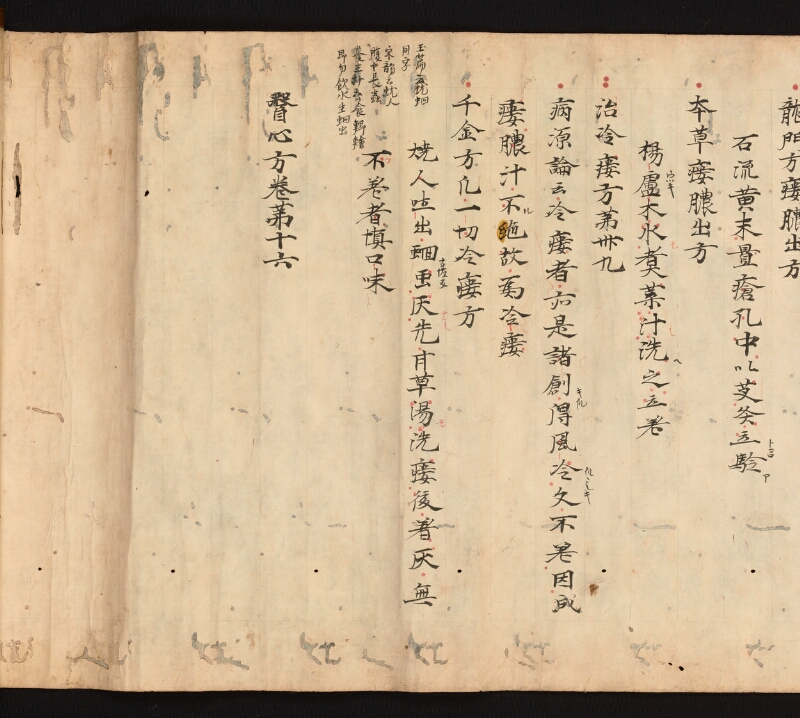 龍門方瘻膿出方
石流黄末置瘡孔中以艾灸立驗
本草瘻膿出方
楊盧木水煮葉汁洗之立差
治冷瘻方第卅九
病源論云冷瘻者亦是諸創得風冷久不差因成
瘻膿汁不絶故爲冷瘻
千金方凡一切冷瘻方
燒人吐出蛔虫灰先甘草湯洗瘻後著灰無
不差者慎口味
玉篇云蚘蛔
同字
宋韻云蚘人
腹中長虫
醫心方卷第十六